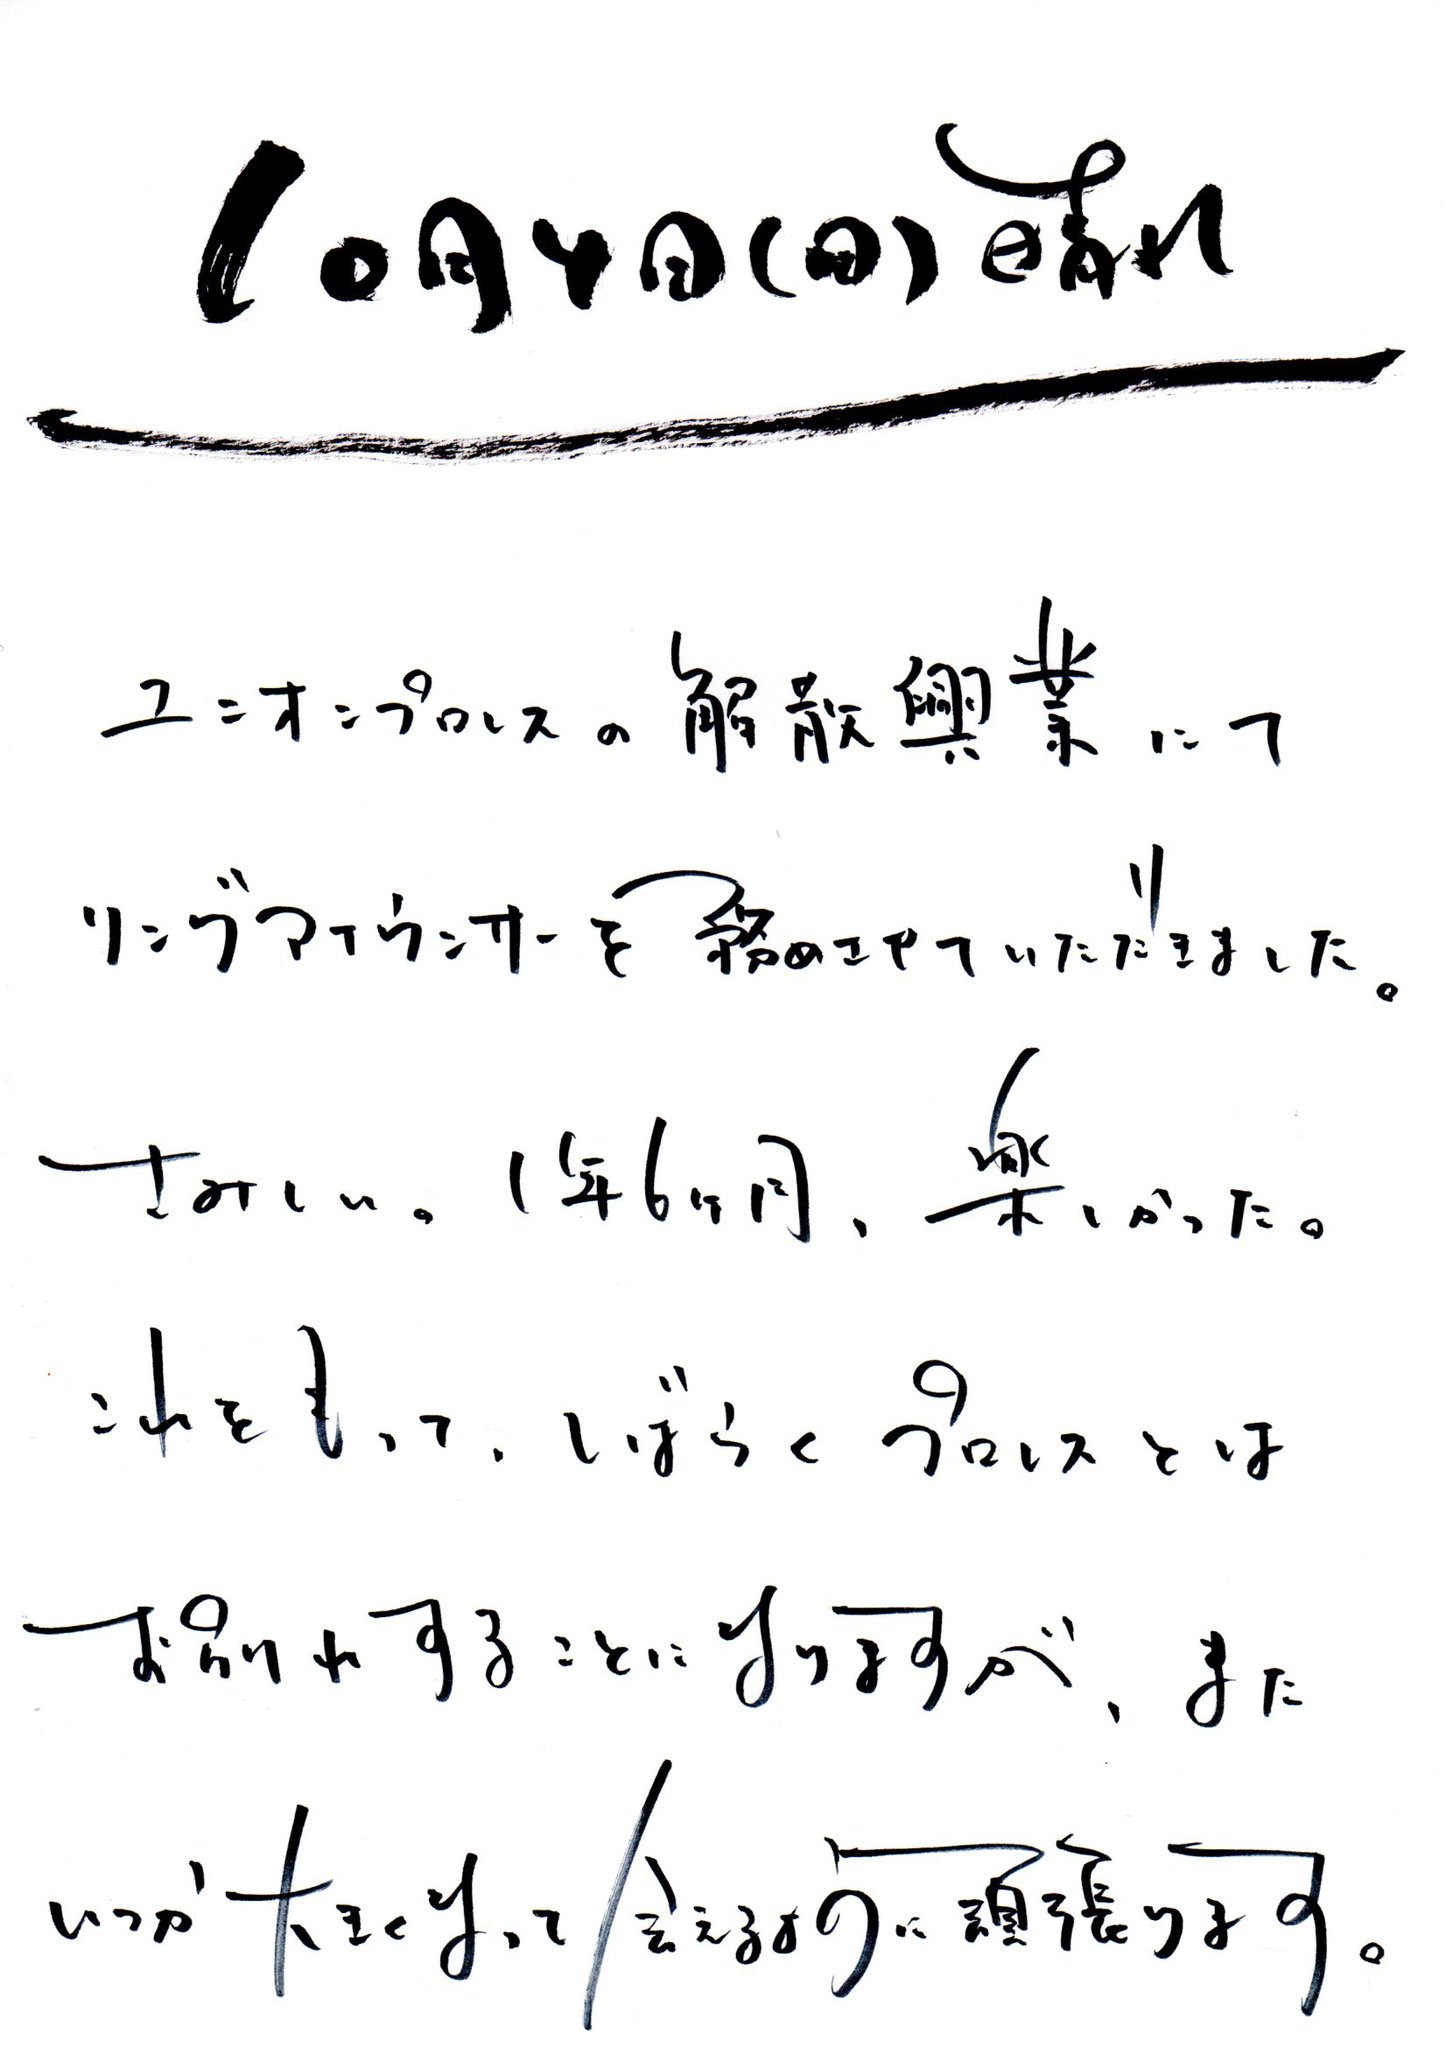 10月4日(日)晴れ
ユニオンプロレスの解散興業にて
リングアナウンサーを務めさせていただきました。
さみしい。1年6ヶ月、楽しかった。
これをもって、しばらくプロレスとは
お別れすることになりますが、また
いつか大きくなって会えるように頑張ります。